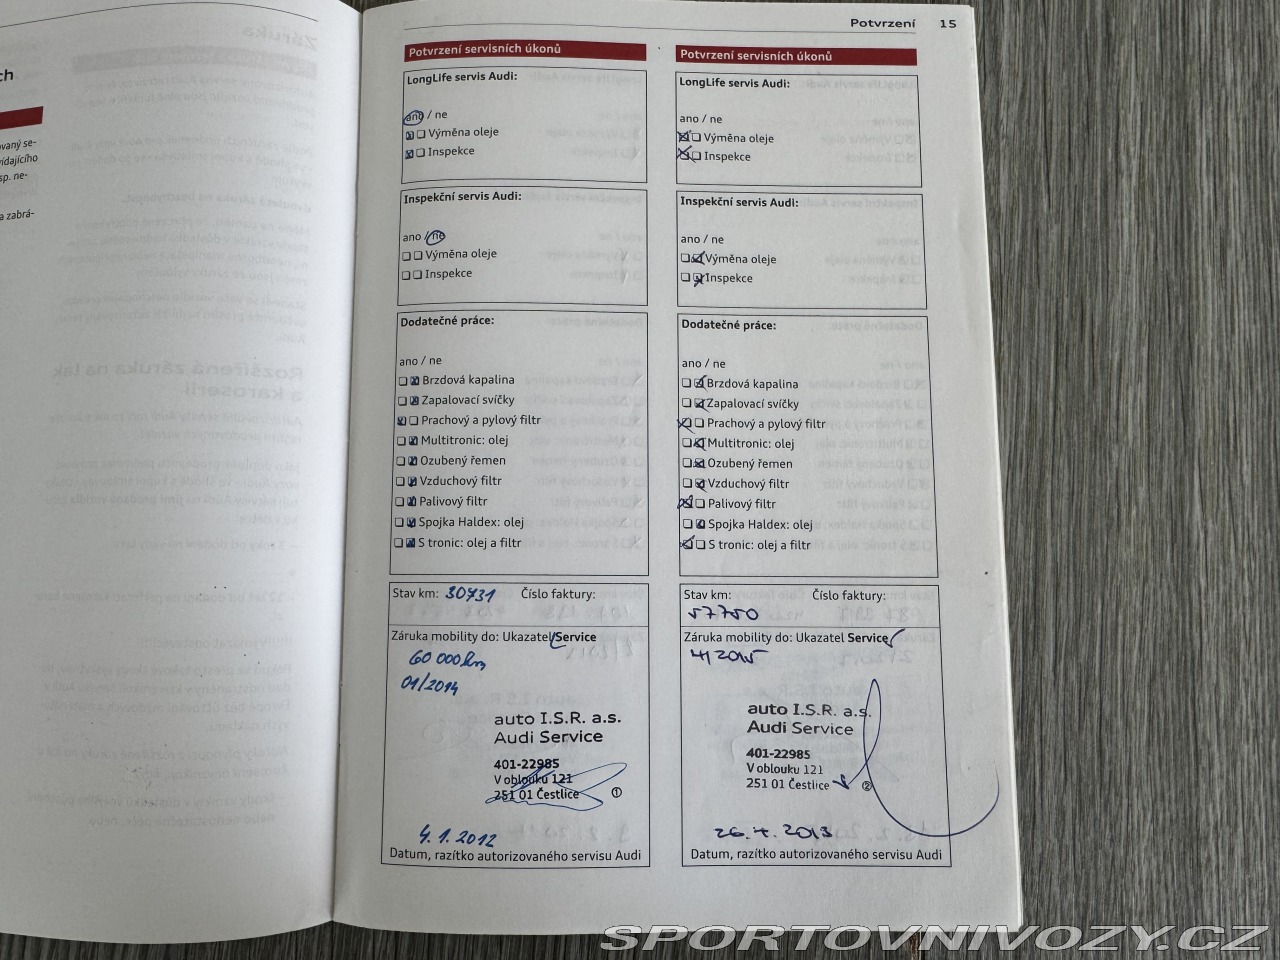 Potvrzení 15
ch
ovaný se-
vídajícího
sp. ne-
a zabrá-
Potvrzení servisních úkonů
LongLife servis Audi:
ano / ne
Výměna oleje
Inspekce
Inspekční servis Audi:
ano / ne
Výměna oleje
Inspekce
Dodatečné práce:
ano / ne
Brzdová kapalina
Zapalovací svíčky
Prachový a pylový filtr
Multitronic: olej
Ozubený řemen
Vzduchový filtr
Palivový filtr
Spojka Haldex: olej
S tronic: olej a filtr
Stav km: 30731 Číslo faktury:
Záruka mobility do: Ukazatel Service
60 000km
01/2014
auto I.S.R. a.s.
Audi Service
401-22985
V oblouku 121
251 01 Čestlice ①
4.1.2012
Datum, razítko autorizovaného servisu Audi
Potvrzení servisních úkonů
LongLife servis Audi:
ano / ne
Výměna oleje
Inspekce
Inspekční servis Audi:
ano / ne
Výměna oleje
Inspekce
Dodatečné práce:
ano / ne
Brzdová kapalina
Zapalovací svíčky
Prachový a pylový filtr
Multitronic: olej
Ozubený řemen
Vzduchový filtr
Palivový filtr
Spojka Haldex: olej
S tronic: olej a filtr
Stav km: Číslo faktury:
57750
Záruka mobility do: Ukazatel Service
4/2015
auto I.S.R. a.s.
Audi Service
401-22985
V oblouku 121
251 01 Čestlice ②
26.4.2013
Datum, razítko autorizovaného servisu Audi
SPORTOVNIVOZY.CZ